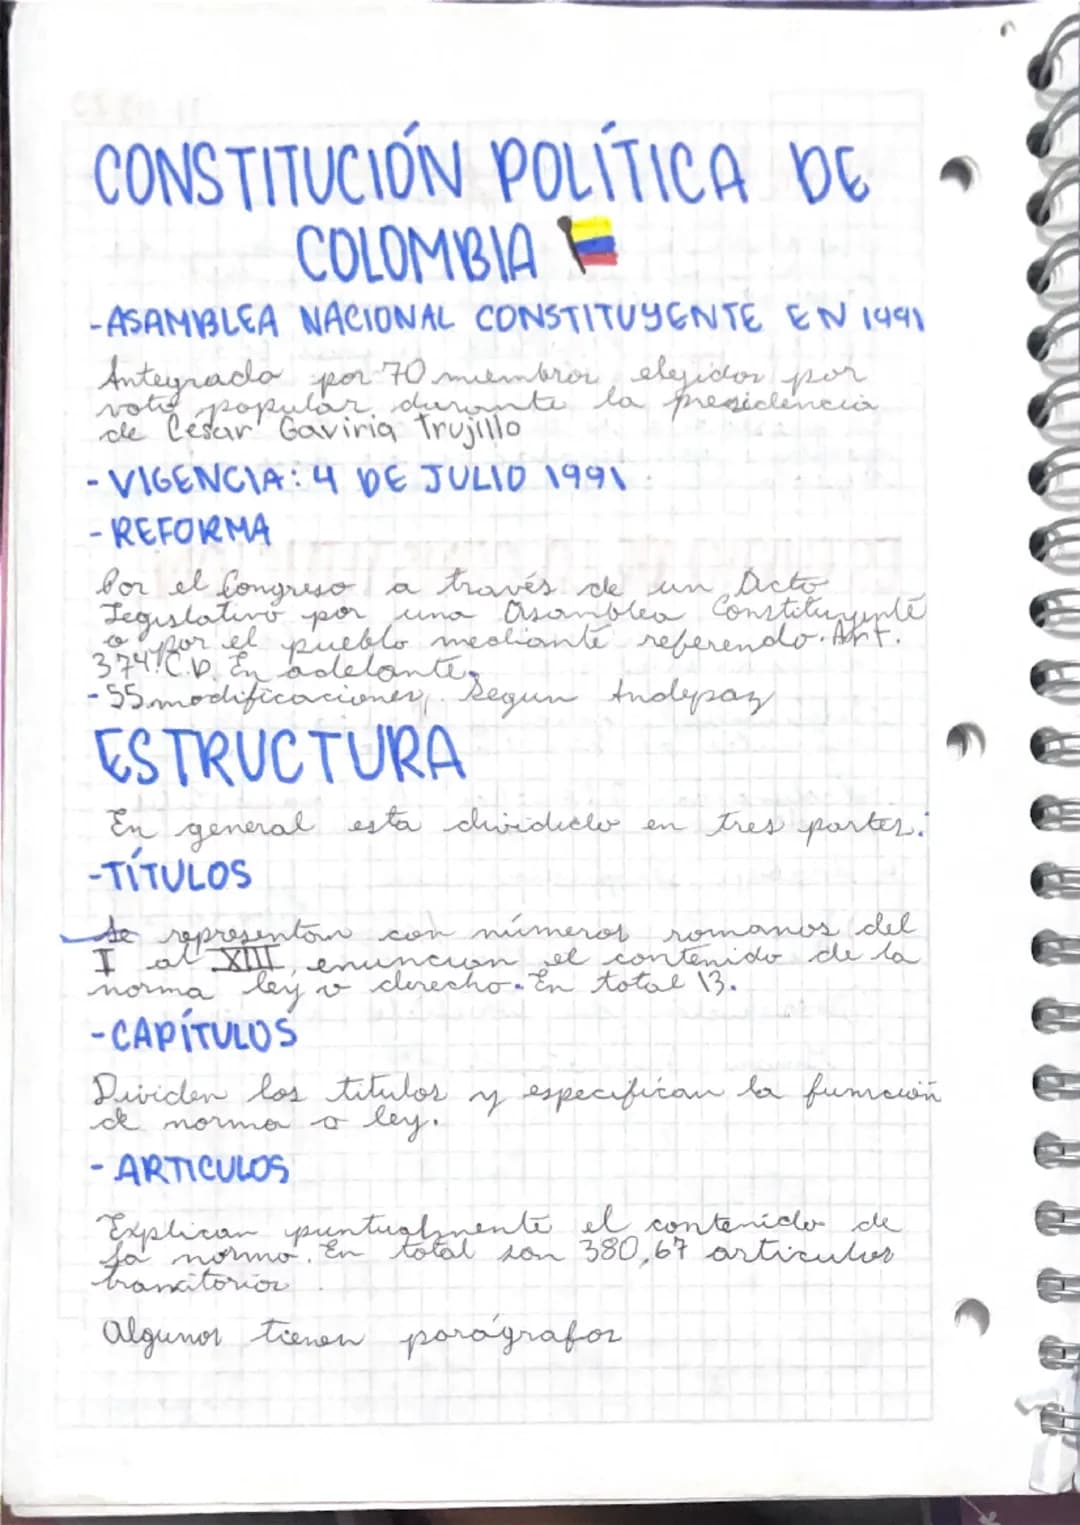 CONSTITUCIÓN POLÍTICA DE
COLOMBIA
-ASAMBLEA NACIONAL CONSTITUYENTE EN 1991
Integrada por 70 miembros elegidos por
voto popular durante la presidencia
de Cesar Gaviria Trujillo
-VIGENCIA: 4 DE JULIO 1991
-REFORMA
Por el Congreso a través de un Acto
Legislativo por una Asamblea Constituyente
o por el pueblo mediante referendo. Art.
374 C.P. En adelante
-55 modificaciones, Segun Indepaz
ESTRUCTURA
En general esta dividido en tres partes:
-TÍTULOS
Se representan con números romanos del
I al XIII, enuncian el contenido de la
norma ley o derecho. En total 13.
-CAPÍTULOS
Dividen los titulos y especifican la función
de norma o ley.
-ARTICULOS
Explican puntualmente el contenido de
la norma. En total son 380,67 articulos
transitorios
Algunos tienen parágrafos